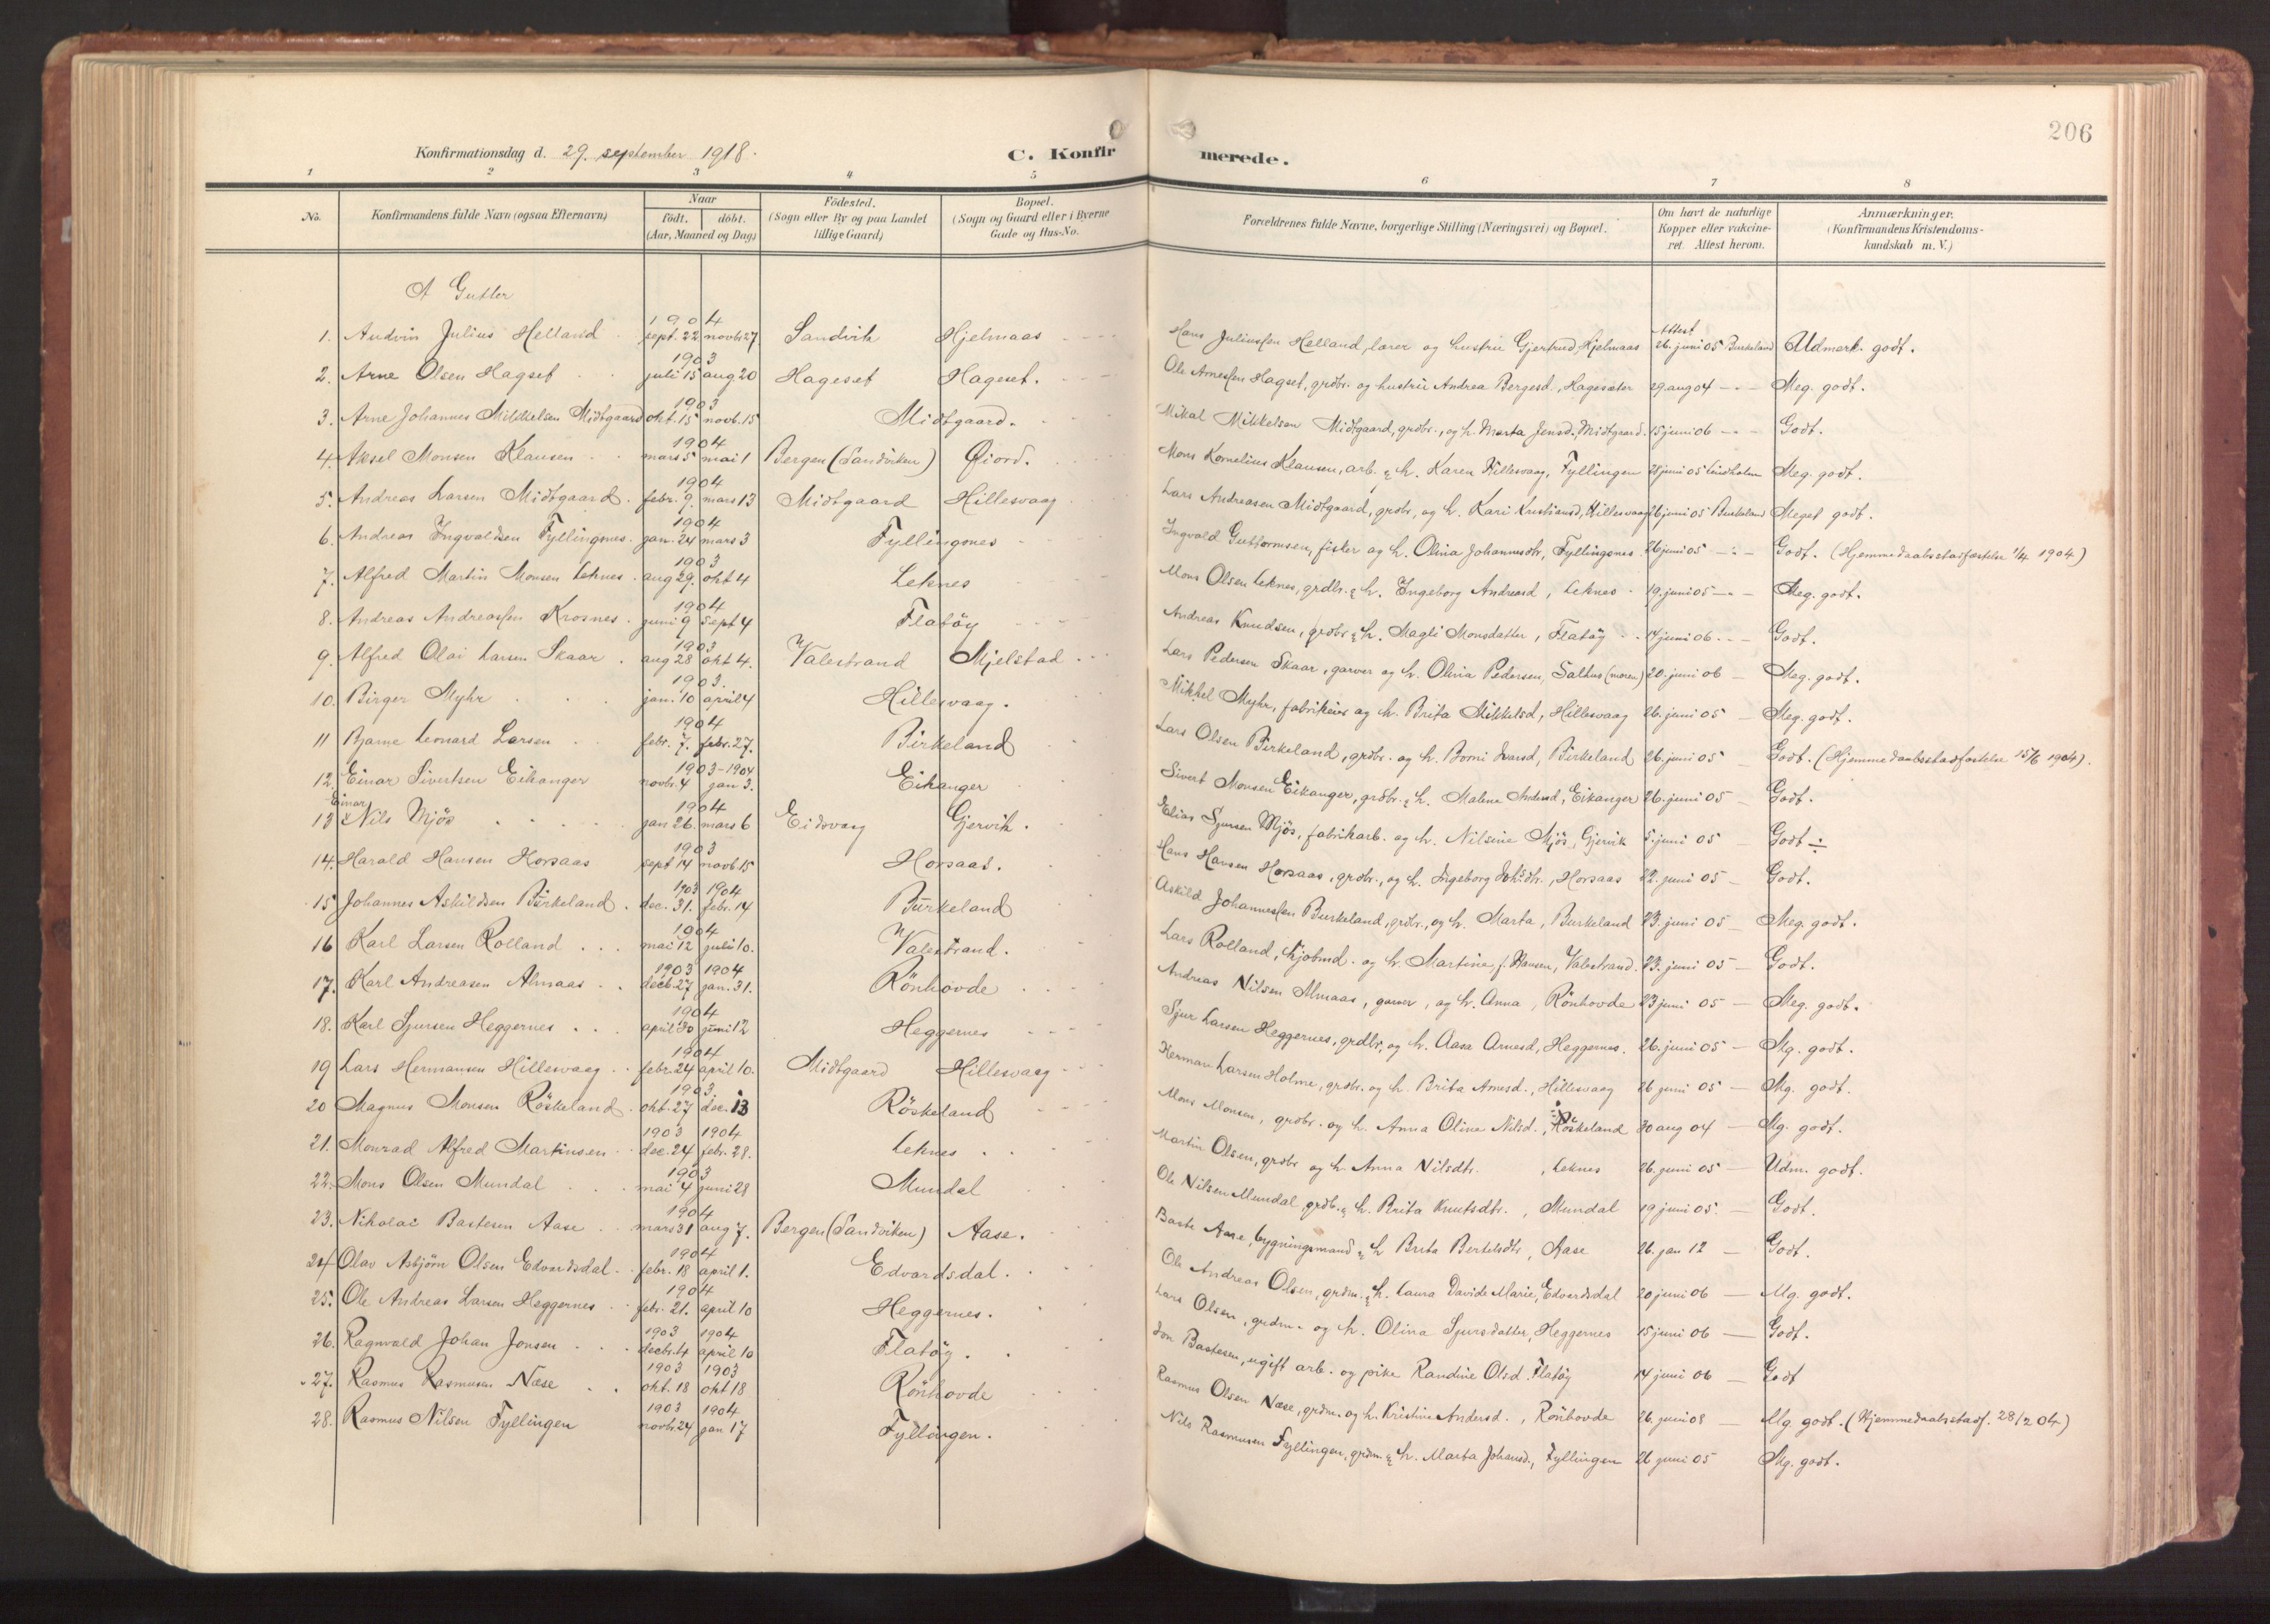 206
Konfirmationsdag d. 29. september 1918.
C. Konfirmerede.
1 2 3 4 5 6 7 8
No. Konfirmandens fulde Navn (ogsaa Efternavn) Naar født. døbt. (Aar, Maaned og Dag) Födested. (Sogn eller By og paa Landet tillige Gaard) Bopæl. (Sogn og Gaard eller i Byerne Gade og Hus-No. Forældrenes fulde Navne, borgerlige Stilling (Næringsvei) og Bopæl. Om havt de naturlige Kopper eller vakcineret. Attest herom. Anmærkninger. (Konfirmandens Kristendomskundskab m. V.)
A Gutter
1. Audvin Julius Helland 1904 sept. 22 novb. 27 Sandvik Hjelmaas Hans Juliussen Helland, lærer og hustru Gjertrud, Hjelmaas Attest 26. juni 05 Burkeland Udmerk. godt.
2. Arne Olsen Hagset 1903 juli 15 aug 20 Hageset Hageset. Ole Arnessen Hagset, grdbr. og hustru Andrea Bergesd., Hagesæter 29. aug 04 Meg. godt.
3. Arne Johannes Mikkelsen Midtgaard 1903 okt. 15 novb. 15 Midtgaard. Mikal Mikkelsen Midtgaard, grdbr., og h. Marta Jensd., Midtgaard. 15 juni 06 Godt.
4. Aksel Monsen Klausen 1904 mars 5 mai 1 Bergen (Sandviken) Mons Kornelius Klausen, arb. & h. Karen Hillesvaag, Fyllingen 25 juni 05 Meg. godt.
5. Andreas Larsen Midtgaard 1904 febr. 9. mars 13 Midtgaard Hillesvaag Lars Andreasen Midtgaard, grdbr, og h. Kari Kristiansd, Hillesvaag 26 juni 05 Burkeland Meget godt.
6. Andreas Ingvaldsen Fyllingsnes. 1904 jan. 24 mars 3 Fyllingsnes Ingvald Guttormsen, fisker og h. Olina Johannesdtr, Fyllingsnes 26 juni 05 Godt. (Hjemmedaabsstadfæstelse 1/4 1904)
7. Alfred Martin Monsen Leknes 1903 aug 29. okt 4 Leknes Mons Olsen Leknes, grdbr. & h. Ingeborg Andreasd, Leknes 19. juni 05 Meg. godt.
8. Andreas Andreassen Krosnes 1904 juni 9 sept 4 Flatöy Andreas Knudsen, grdbr & h. Magli Monsdatter, Flatöy 14 juni 06 Godt.
9. Alfred Olai Larsen Skaar 1903 aug 28 okt 4. Valestrand Mjelstad Lars Pedersen Skaar, garver og h. Olina Pedersen, Salhus (moren) 20. juni 06 Meg. godt.
10. Birger Myhr 1903. jan. 10 april 4 Hillesvaag. Mikkel Myhr, fabrikeier og h. Brita Mikkelsd, Hillesvaag 26. juni 05 Meg. godt.
11 Bjarne Leonard Larsen 1904 febr. 7. febr. 27. Birkeland Lars Olsen Birkeland, grdbr. og h. Borni Larsd, Birkeland 26. juni 05 Godt. (Hjemmedaabsstadfæstelse 15/6 1904).
12. Einar Sivertsen Eikanger 1903-1904 novbr. 4 jan 3. Eikanger Sivert Monsen Eikanger, grdbr. & h. Malene Andersd, Eikanger 26. juni 05 Godt.
13 Einar x Nils Mjös 1904 jan 26. mars 6 Eidsvaag Gjervik. Elias Sjursen Mjös, fabrikarb. og h. Nilsine Mjös, Gjervik 5. juni 05 Godt ÷
14. Harald Hansen Horsaas 1903 sept 14 novb 15 Horsaas. Hans Hansen Horsaas, grdbr., og h. Ingeborg Johsdtr., Horsaas 22. juni 05 Godt.
15 Johannes Askildsen Burkeland 1903 1904 dec. 31. febr. 14 Burkeland Askild Johannessen Burkeland, grdbr., og h. Marta, Burkeland 23. juni 05 Meg. godt.
16 Karl Larsen Rolland 1904 mai 12 juli 10. Valestrand. Lars Rolland, kjøbmd. og h. Martine f. Hansen, Valestrand. 23. juni 05 Godt.
17. Karl Andreasen Almaas 1903 1904 decb. 27 jan. 31. Rönhovde Andreas Nilsen Almaas, garver, og h. Anna, Rönhovde 23 juni 05 Meg. godt.
18. Karl Sjursen Heggernes 1904 april 30 juni 12 Heggernes Sjur Larsen Heggernes, grdbr, og h. Aasa Arnesd, Heggernes. 26. juni 05 Mg. godt.
19 Lars Hermansen Hillesvaag 1904 febr. 24 april 10. Midtgaard Hillesvaag Herman Larsen Holme, grdbr. og h. Brita Arnesd., Hillesvaag 26 juni 05 Mg. godt.
20 Magnus Monsen Röskeland 1903 okt. 27 dec. 13 Röskeland Mons Monsen, grdbr. og h. Anna Olina Nilsd., Röskeland 30 aug 04 Mg. godt.
21. Monrad Alfred Martinsen 1903 1904 dec. 24 febr. 28. Leknes Martin Olsen, grdbr og h. Anna Nilsdtr., Leknes 26. juni 05 Udm. godt.
22. Mons Olsen Mundal 1903 mai 4 juni 28 Mundal Ole Nilsen Mundal, grdb. & h. Brita Knutsdtr., Mundal 19 juni 05. Godt.
23. Nikolai Bastesen Aase 1904 mars 31 aug 7. Bergen (Sandviken) Aase. Baste Aase, bygningsmand & h Brita Bertelsdtr, Aase 26. jan 12 Godt.
24 Olav Asbjörn Olsen Edvardsdal 1904 febr. 18 april 1. Edvardsdal. Ole Andreas Olsen, grdm. & h. Laura Davide Marie, Edvardsdal 20 juni 06 Mg. godt.
25. Ole Andreas Larsen Heggernes 1904 febr. 21. april 10 Heggernes. Lars Olsen, grdm. og h. Olina Sjursdatter, Heggernes 15 juni 06 Godt.
26. Ragnvald Johan Jonsen 1903 1904 decbr. 4 april 10 Flatöy. Jon Bastesen, ugift arb. og pike Randine Olsd. Flatöy 14 juni 06 Godt
27. Rasmus Rasmusen Næse 1903 1903 okt. 18 okt 18 Rönhovde Rasmus Olsen Næse, grdm. og h. Kristine Andersd., Rönhovde 26. juni 08 Mg. godt. (Hjemmedaabsstadf. 28/2 04)
28. Rasmus Nilsen Fyllingen 1903 1904 novb 24 jan 17 Fyllingen. Nils Rasmusen Fyllingen, grdm. & h. Marta Johansd., Fyllingen 26 juni 05 Mg. godt.